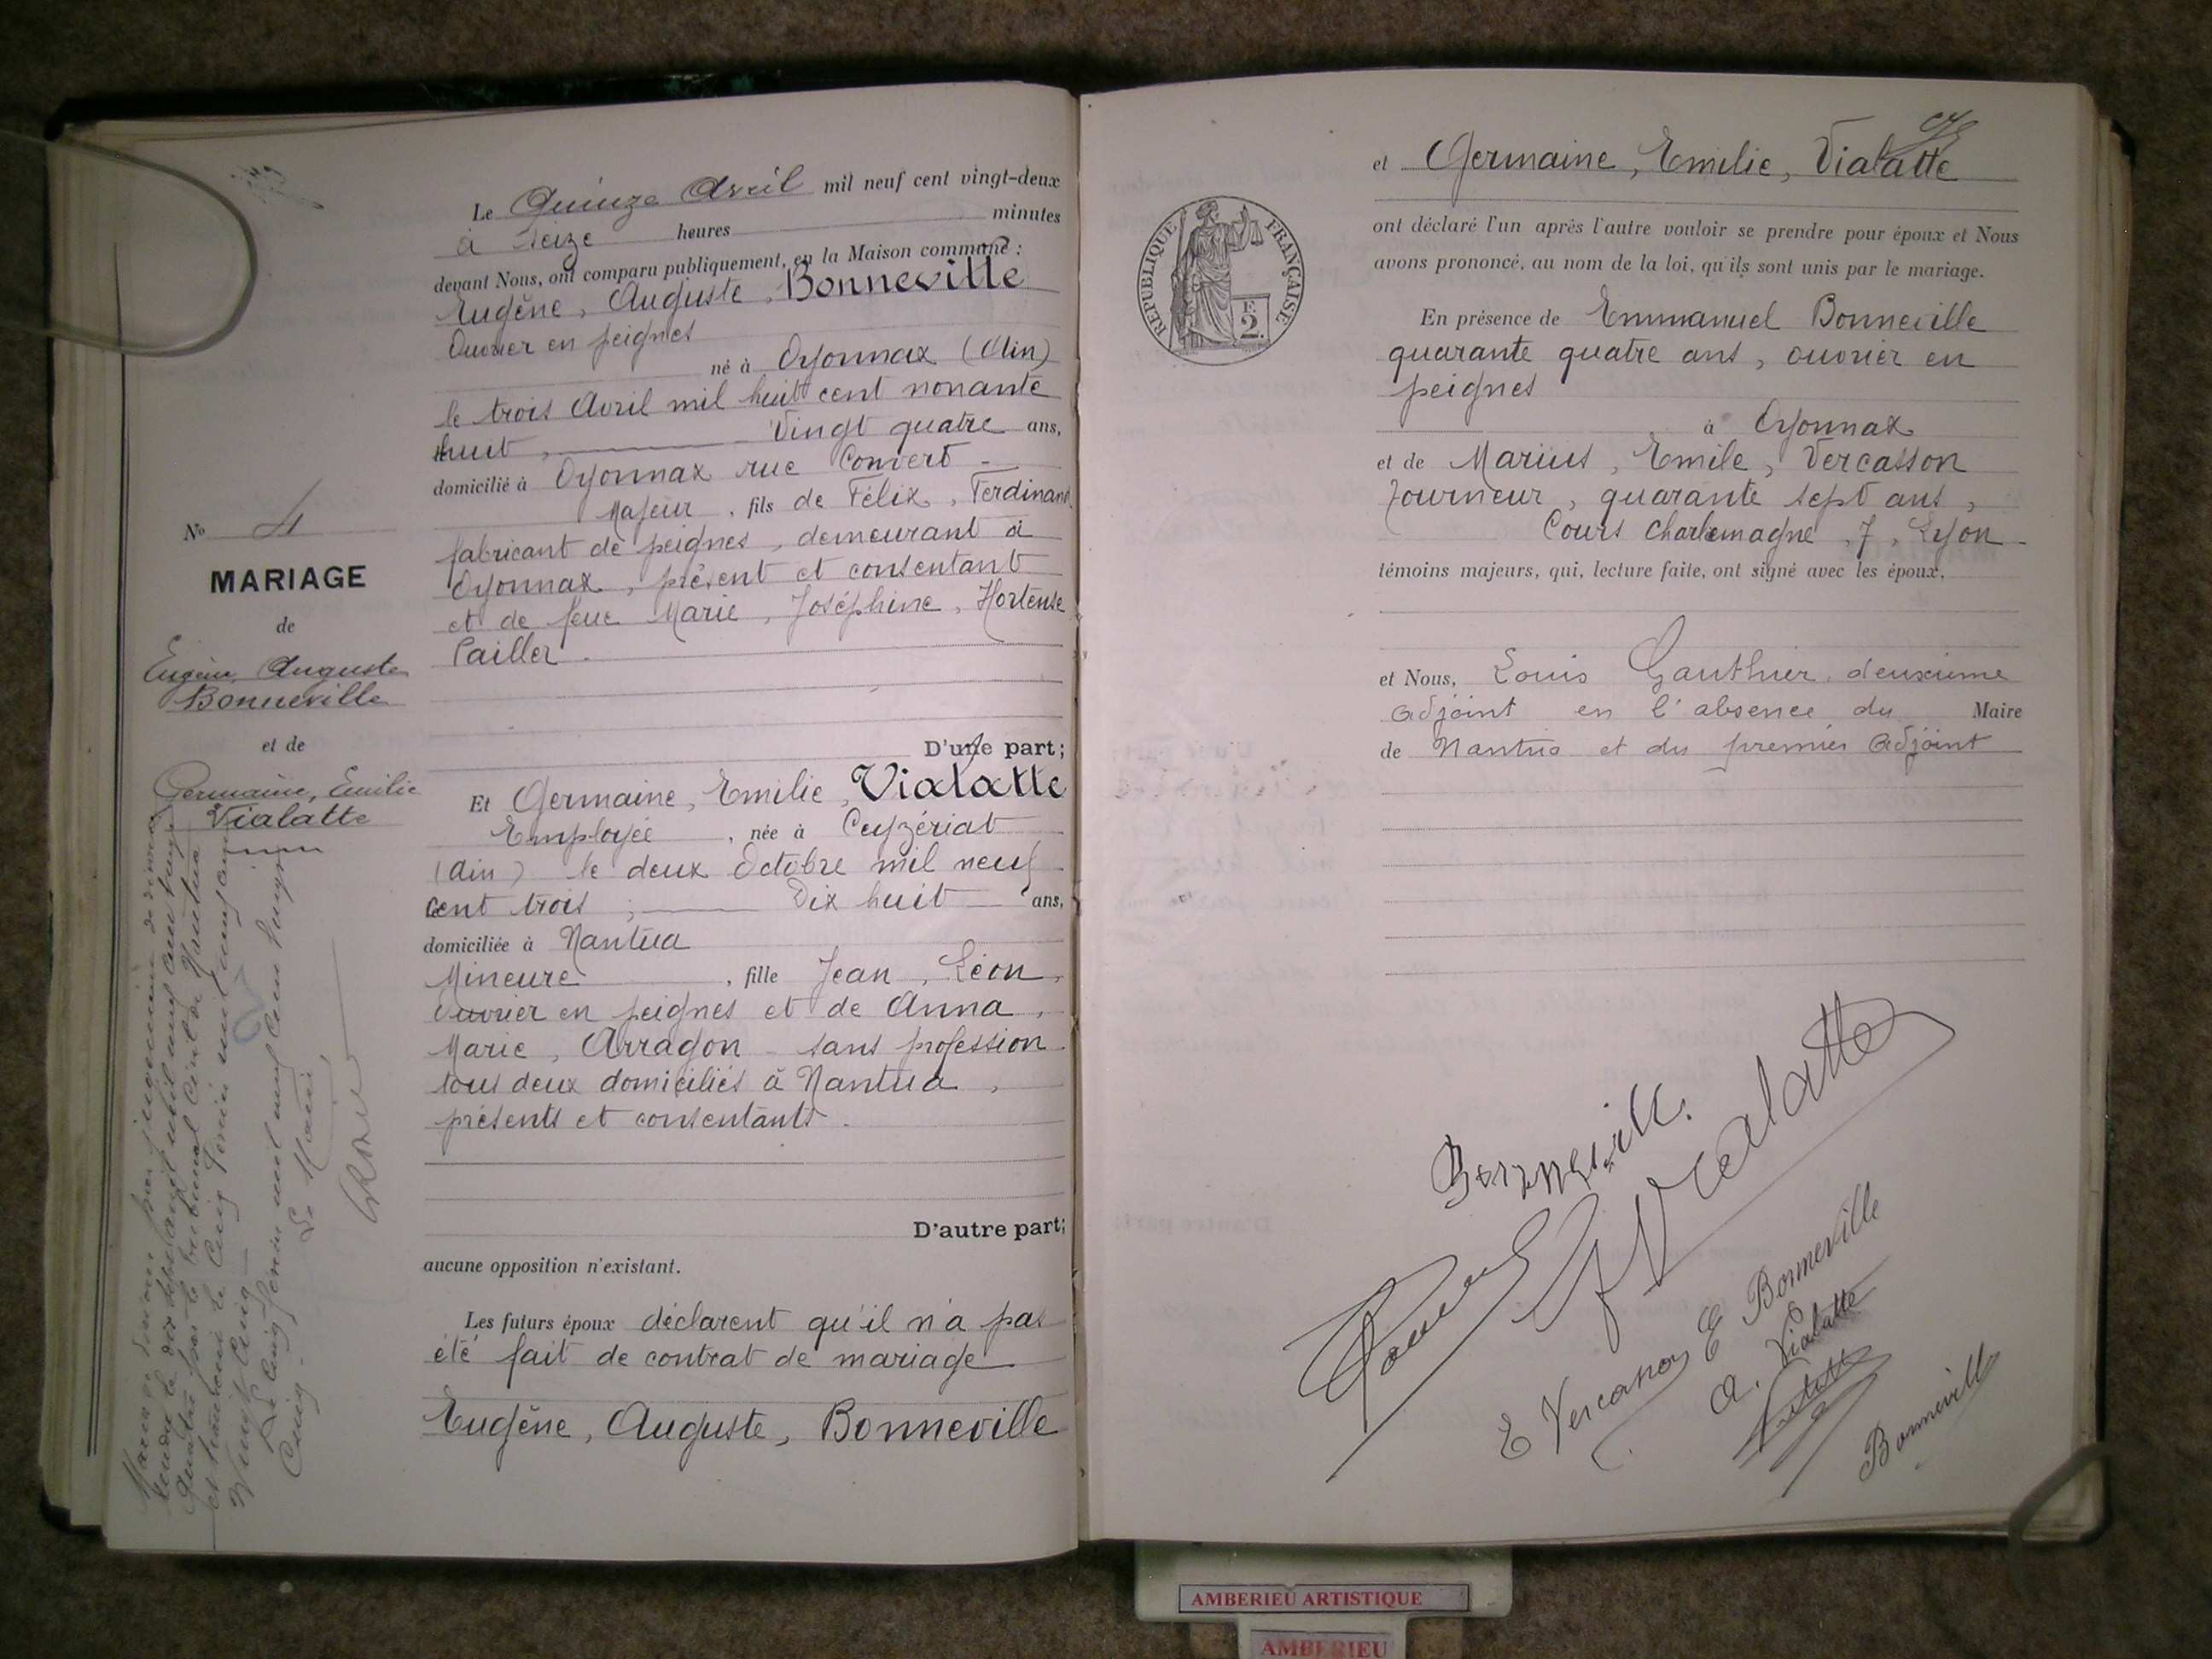 Le Quinze Avril mil neuf cent vingt-deux
à Seize heures minutes
devant Nous, ont comparu publiquement, en la Maison commune :
Eugène, Auguste, Bonneville
Ouvrier en peignes
né à Oyonnax (Ain)
le trois Avril mil huit cent nonante
huit, Vingt quatre ans,
domicilié à Oyonnax rue Convert
Majeur, fils de Félix, Ferdinand
fabricant de peignes, demeurant à
Oyonnax, présent et consentant
et de feue Marie, Joséphine, Hortense
Pailler.
D'une part;
Et Germaine, Emilie, Vialatte
Employée, née à Ceyzériat
(Ain) le deux Octobre mil neuf
cent trois ; Dix huit ans,
domiciliée à Nantua
Mineure, fille Jean, Léon,
Ouvrier en peignes et de Anna,
Marie, Arragon sans profession
tous deux domiciliés à Nantua,
présents et consentants.
D'autre part;
aucune opposition n'existant.
Les futurs époux déclarent qu'il n'a pas
été fait de contrat de mariage
Eugène, Auguste, Bonneville
No 4
MARIAGE
de
Eugène, Auguste
Bonneville
et de
Germaine, Emilie
Vialatte
par jugement de divorce
rendu le dix sept avril mil neuf cent vingt
quatre par le tribunal Civil de Nantua
Le cinq Février mil neuf cent vingt
Cinq.
Le Maire
REPUBLIQUE FRANÇAISE
2 F.
et Germaine, Emilie, Vialatte
ont déclaré l'un après l'autre vouloir se prendre pour époux et Nous
avons prononcé, au nom de la loi, qu'ils sont unis par le mariage.
En présence de Emmanuel Bonneville
quarante quatre ans, ouvrier en
peignes
à Oyonnax
et de Marius, Emile, Vercasson
Tourneur, quarante sept ans,
Cours Charlemagne, 7, Lyon
témoins majeurs, qui, lecture faite, ont signé avec les époux,
et Nous, Louis Gauthier, deuxième
adjoint en l'absence du Maire
de Nantua et du premier adjoint
Bonneville
G Vialatte
E Vercasson
E Bonneville
A. Vialatte
Bonneville
AMBERIEU ARTISTIQUE
AMBERIEU